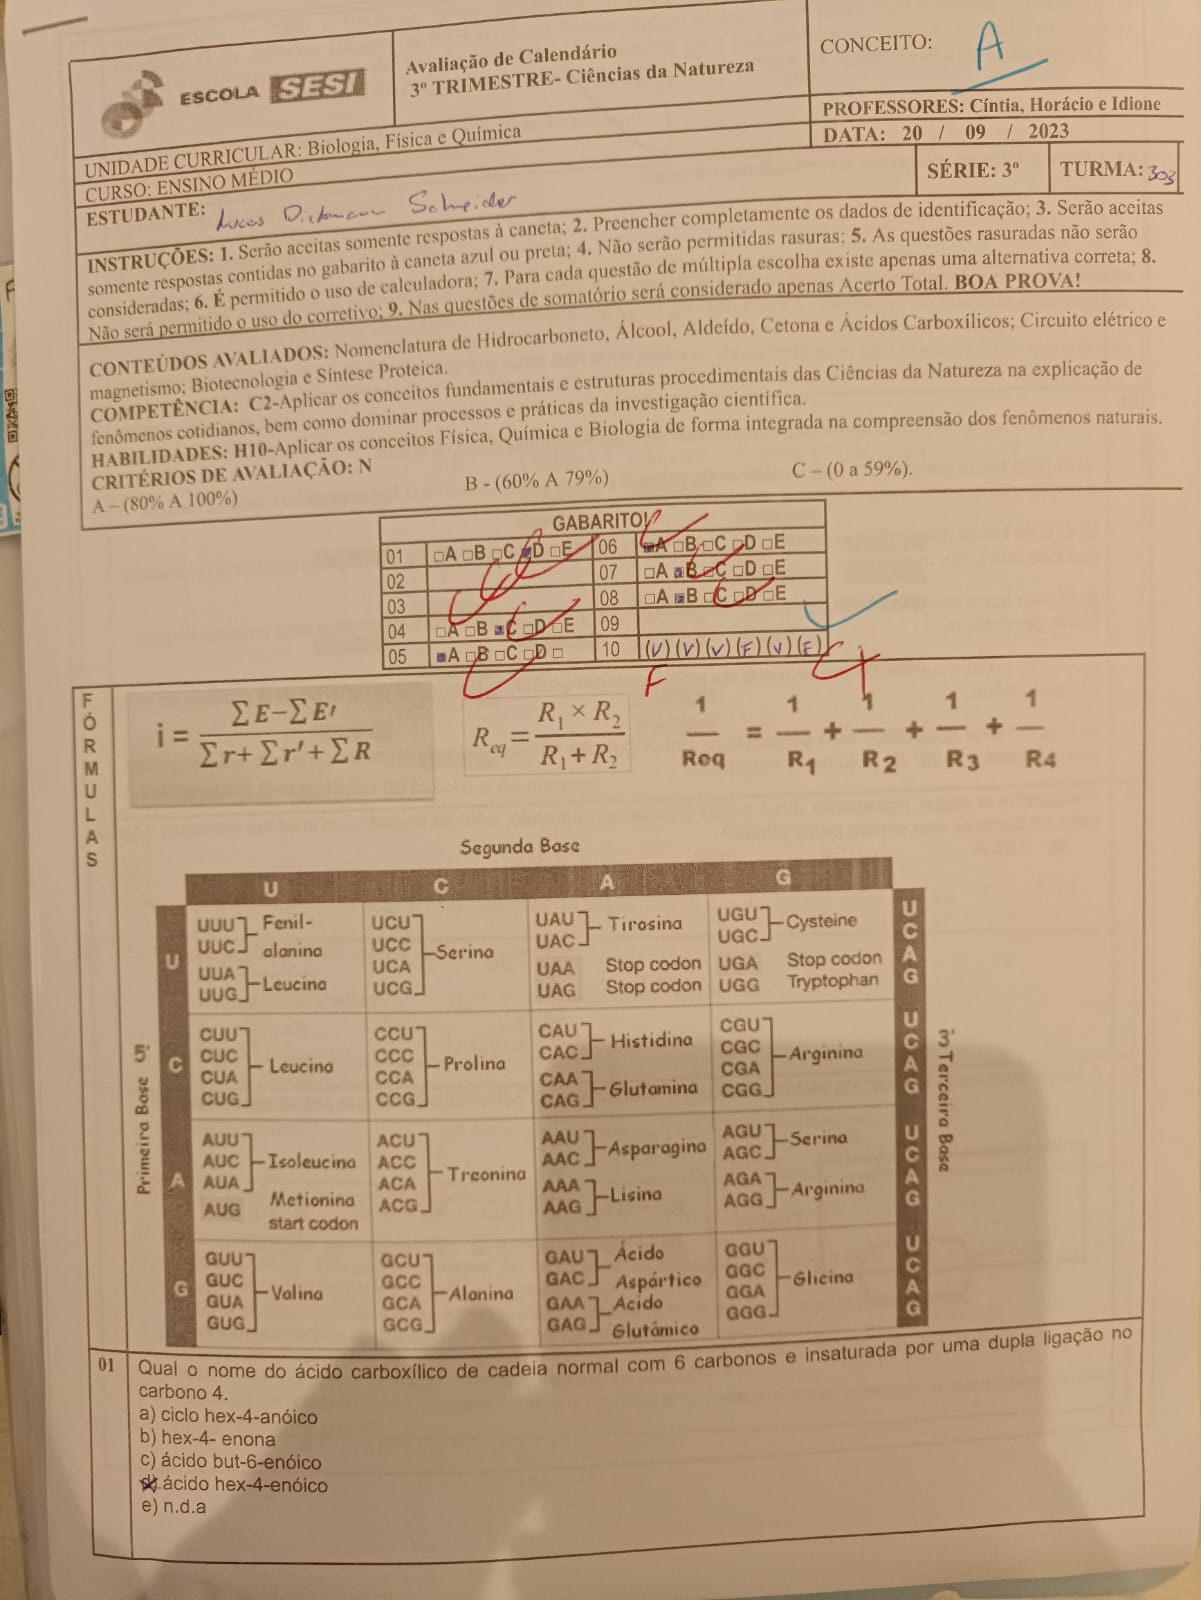 ESCOLA SESI
Avaliação de Calendário
3º TRIMESTRE- Ciências da Natureza
CONCEITO: A
PROFESSORES: Cíntia, Horácio e Idione
UNIDADE CURRICULAR: Biologia, Física e Química
DATA: 20 / 09 / 2023
CURSO: ENSINO MÉDIO
SÉRIE: 3º
TURMA: 303
ESTUDANTE: Lucas Dickmann Schneider
INSTRUÇÕES: 1. Serão aceitas somente respostas à caneta; 2. Preencher completamente os dados de identificação; 3. Serão aceitas
somente respostas contidas no gabarito à caneta azul ou preta; 4. Não serão permitidas rasuras; 5. As questões rasuradas não serão
consideradas; 6. É permitido o uso de calculadora; 7. Para cada questão de múltipla escolha existe apenas uma alternativa correta; 8.
Não será permitido o uso do corretivo; 9. Nas questões de somatório será considerado apenas Acerto Total. BOA PROVA!
CONTEÚDOS AVALIADOS: Nomenclatura de Hidrocarboneto, Álcool, Aldeído, Cetona e Ácidos Carboxílicos; Circuito elétrico e
magnetismo; Biotecnologia e Síntese Proteica.
COMPETÊNCIA: C2-Aplicar os conceitos fundamentais e estruturas procedimentais das Ciências da Natureza na explicação de
fenômenos cotidianos, bem como dominar processos e práticas da investigação científica.
HABILIDADES: H10-Aplicar os conceitos Física, Química e Biologia de forma integrada na compreensão dos fenômenos naturais.
CRITÉRIOS DE AVALIAÇÃO: N
A – (80% A 100%) B - (60% A 79%) C – (0 a 59%).
GABARITO!
01 □A □B □C ■D □E 06 ■A □B □C □D □E
02 07 □A ■B □C □D □E
03 08 □A ■B □C □D □E
04 □A □B ■C □D □E 09
05 ■A □B □C □D □ 10 (V) (V) (V) (F) (V) (F)
F
FÓRMULAS
i = ∑E−∑E′ / ∑r+ ∑r′+ ∑R
Req = R1 × R2 / R1 + R2
1/Req = 1/R1 + 1/R2 + 1/R3 + 1/R4
Segunda Base
U C A G
Primeira Base 5'
3' Terceira Base
U
UUU UUC Fenil-alanina
UUA UUG Leucina
UCU UCC UCA UCG Serina
UAU UAC Tirosina
UAA Stop codon
UAG Stop codon
UGU UGC Cysteine
UGA Stop codon
UGG Tryptophan
U C A G
C
CUU CUC CUA CUG Leucina
CCU CCC CCA CCG Prolina
CAU CAC Histidina
CAA CAG Glutamina
CGU CGC CGA CGG Arginina
U C A G
A
AUU AUC AUA Isoleucina
AUG Metionina start codon
ACU ACC ACA ACG Treonina
AAU AAC Asparagina
AAA AAG Lisina
AGU AGC Serina
AGA AGG Arginina
U C A G
G
GUU GUC GUA GUG Valina
GCU GCC GCA GCG Alanina
GAU GAC Ácido Aspártico
GAA GAG Acido Glutâmico
GGU GGC GGA GGG Glicina
U C A G
01 Qual o nome do ácido carboxílico de cadeia normal com 6 carbonos e insaturada por uma dupla ligação no
carbono 4.
a) ciclo hex-4-anóico
b) hex-4- enona
c) ácido but-6-enóico
d) ácido hex-4-enóico
e) n.d.a